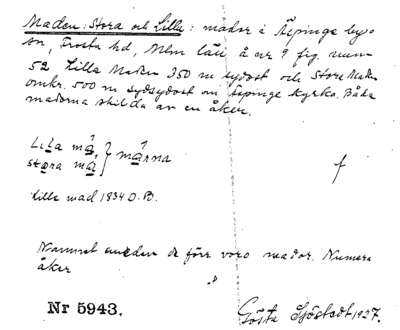 Maden: Stora och Lilla: mador i Äspinge by,
sn, Frosta hd, Mlm län å nr 9 fig. num
52 Lilla Maden 350 m sydost och Stora Maden
omkr. 500 m sydsydost om Äspinge kyrka. Båda
madorna skilda av en åker.
Lila må
stora må } mårna
f
Lille mad 1834 O.B.
Namnet emedan de förr voro mador. Numera
åker
Nr 5943. Gösta Sjöstedt 1927.